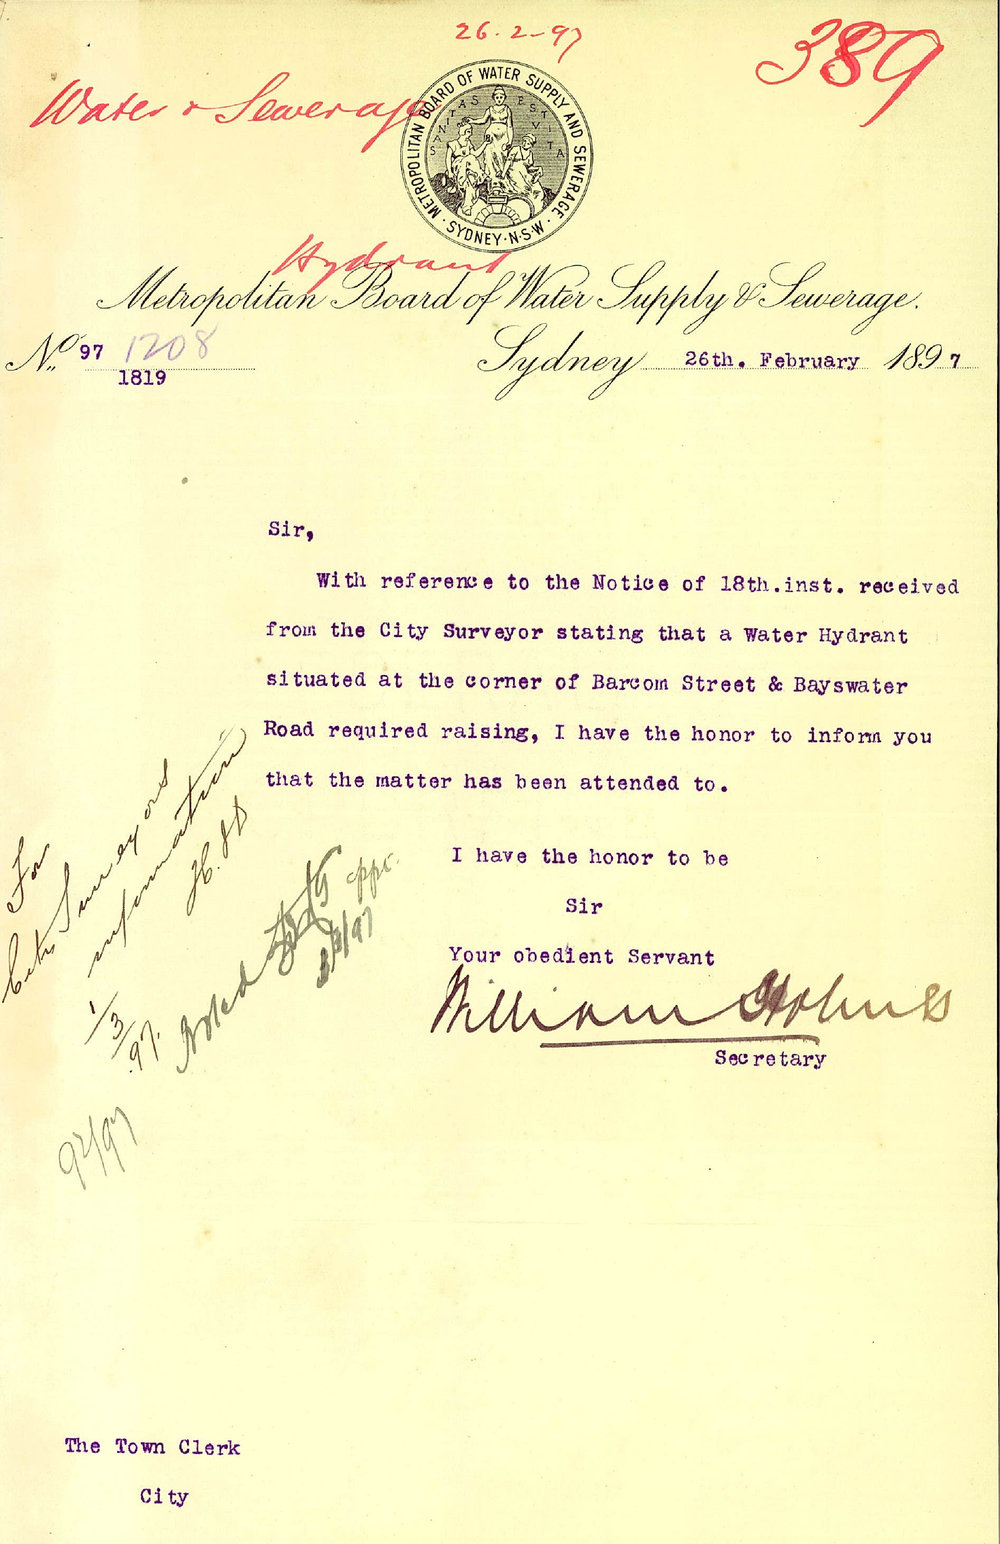 26.2-97
389
Water & Sewerage
METROPOLITAN BOARD OF WATER SUPPLY AND SEWERAGE
SANITAS EST VITA
· SYDNEY · N·S·W ·
Hydrant
Metropolitan Board of Water Supply & Sewerage.
No. 97 1208
1819
Sydney 26th. February 1897
Sir,
With reference to the Notice of 18th.inst. received
from the City Surveyor stating that a Water Hydrant
situated at the corner of Barcom Street & Bayswater
Road required raising, I have the honor to inform you
that the matter has been attended to.
I have the honor to be
Sir
Your obedient Servant
William Holmes
Secretary
For
City Surveyors
information
1/3/97.
Noted
97
The Town Clerk
City